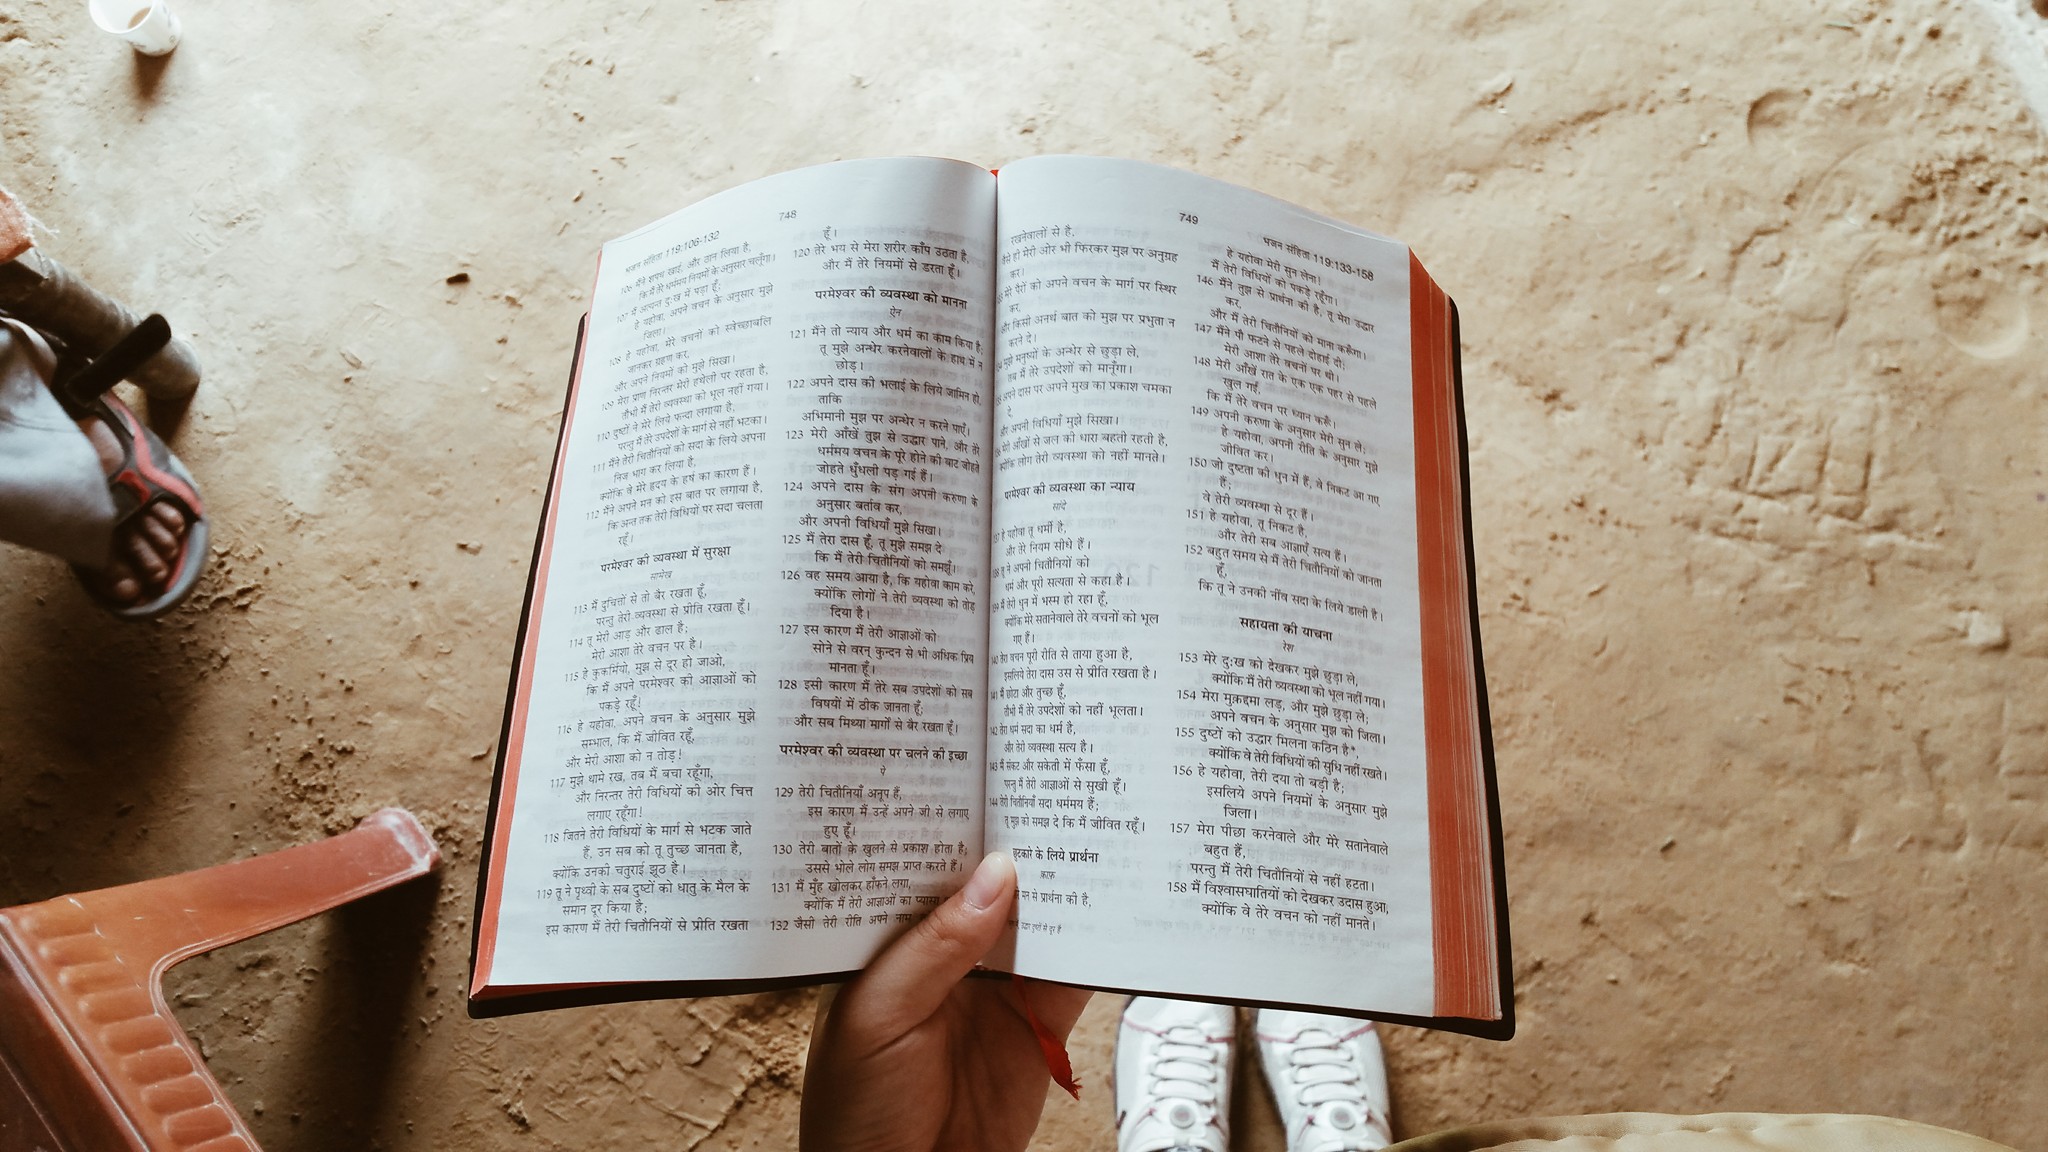 748
भजन संहिता 119:106-132
106 मैंने शपथ खाई, और ठान लिया है,
कि मैं तेरे धर्ममय नियमों के अनुसार चलूँगा।
107 मैं अत्यन्त दुःख में पड़ा हूँ;
हे यहोवा, अपने वचन के अनुसार मुझे
जिला।
108 हे यहोवा, मेरे वचनों को स्वेच्छाबलि
जानकर ग्रहण कर,
और अपने नियमों को मुझे सिखा।
109 मेरा प्राण निरन्तर मेरी हथेली पर रहता है,
तौभी मैं तेरी व्यवस्था को भूल नहीं गया।
110 दुष्टों ने मेरे लिये फन्दा लगाया है,
परन्तु मैं तेरे उपदेशों के मार्ग से नहीं भटका।
111 मैंने तेरी चितौनियों को सदा के लिये अपना
निज भाग कर लिया है,
क्योंकि वे मेरे हृदय के हर्ष का कारण हैं।
112 मैंने अपने मन को इस बात पर लगाया है,
कि अन्त तक तेरी विधियों पर सदा चलता
रहूँ।
परमेश्वर की व्यवस्था में सुरक्षा
सामेख
113 मैं दुचित्तों से तो बैर रखता हूँ,
परन्तु तेरी व्यवस्था से प्रीति रखता हूँ।
114 तू मेरी आड़ और ढाल है;
मेरी आशा तेरे वचन पर है।
115 हे कुकर्मियो, मुझ से दूर हो जाओ,
कि मैं अपने परमेश्वर की आज्ञाओं को
पकड़े रहूँ!
116 हे यहोवा, अपने वचन के अनुसार मुझे
सम्भाल, कि मैं जीवित रहूँ,
और मेरी आशा को न तोड़!
117 मुझे थामे रख, तब मैं बचा रहूँगा,
और निरन्तर तेरी विधियों की ओर चित्त
लगाए रहूँगा!
118 जितने तेरी विधियों के मार्ग से भटक जाते
हैं, उन सब को तू तुच्छ जानता है,
क्योंकि उनकी चतुराई झूठ है।
119 तू ने पृथ्वी के सब दुष्टों को धातु के मैल के
समान दूर किया है;
इस कारण मैं तेरी चितौनियों से प्रीति रखता
हूँ।
120 तेरे भय से मेरा शरीर काँप उठता है,
और मैं तेरे नियमों से डरता हूँ।
परमेश्वर की व्यवस्था को मानना
ऐन
121 मैंने तो न्याय और धर्म का काम किया है;
तू मुझे अन्धेर करनेवालों के हाथ में न
छोड़।
122 अपने दास की भलाई के लिये जामिन हो,
ताकि
अभिमानी मुझ पर अन्धेर न करने पाएँ।
123 मेरी आँखें तुझ से उद्धार पाने, और तेरे
धर्ममय वचन के पूरे होने की बाट जोहते
जोहते धुँधली पड़ गई हैं।
124 अपने दास के संग अपनी करुणा के
अनुसार बर्ताव कर,
और अपनी विधियाँ मुझे सिखा।
125 मैं तेरा दास हूँ, तू मुझे समझ दे
कि मैं तेरी चितौनियों को समझूँ।
126 वह समय आया है, कि यहोवा काम करे,
क्योंकि लोगों ने तेरी व्यवस्था को तोड़
दिया है।
127 इस कारण मैं तेरी आज्ञाओं को
सोने से वरन् कुन्दन से भी अधिक प्रिय
मानता हूँ।
128 इसी कारण मैं तेरे सब उपदेशों को सब
विषयों में ठीक जानता हूँ;
और सब मिथ्या मार्गों से बैर रखता हूँ।
परमेश्वर की व्यवस्था पर चलने की इच्छा
पे
129 तेरी चितौनियाँ अनूप हैं,
इस कारण मैं उन्हें अपने जी से लगाए
हुए हूँ।
130 तेरी बातों के खुलने से प्रकाश होता है;
उससे भोले लोग समझ प्राप्त करते हैं।
131 मैं मुँह खोलकर हाँफने लगा,
क्योंकि मैं तेरी आज्ञाओं का प्यासा
132 जैसी तेरी रीति अपने नाम
749
भजन संहिता 119:133-158
रखनेवालों से है,
वैसे ही मेरी ओर भी फिरकर मुझ पर अनुग्रह
कर।
मेरे पैरों को अपने वचन के मार्ग पर स्थिर
कर,
और किसी अनर्थ बात को मुझ पर प्रभुता न
करने दे।
मुझे मनुष्यों के अन्धेर से छुड़ा ले,
तब मैं तेरे उपदेशों को मानूँगा।
अपने दास पर अपने मुख का प्रकाश चमका
दे,
और अपनी विधियाँ मुझे सिखा।
मेरी आँखों से जल की धारा बहती रहती है,
क्योंकि लोग तेरी व्यवस्था को नहीं मानते।
परमेश्वर की व्यवस्था का न्याय
सादे
हे यहोवा तू धर्मी है,
और तेरे नियम सीधे हैं।
तू ने अपनी चितौनियों को
धर्म और पूरी सत्यता से कहा है।
मैं तेरी धुन में भस्म हो रहा हूँ,
क्योंकि मेरे सतानेवाले तेरे वचनों को भूल
गए हैं।
140 तेरा वचन पूरी रीति से ताया हुआ है,
इसलिये तेरा दास उस से प्रीति रखता है।
141 मैं छोटा और तुच्छ हूँ,
तौभी मैं तेरे उपदेशों को नहीं भूलता।
142 तेरा धर्म सदा का धर्म है,
और तेरी व्यवस्था सत्य है।
143 मैं संकट और सकेती में फँसा हूँ,
परन्तु मैं तेरी आज्ञाओं से सुखी हूँ।
144 तेरी चितौनियाँ सदा धर्ममय हैं;
तू मुझ को समझ दे कि मैं जीवित रहूँ।
छुटकारे के लिये प्रार्थना
क़ाफ़
मन से प्रार्थना की है,
हे यहोवा मेरी सुन लेना!
मैं तेरी विधियों को पकड़े रहूँगा।
146 मैंने तुझ से प्रार्थना की है, तू मेरा उद्धार
कर,
और मैं तेरी चितौनियों को माना करूँगा।
147 मैंने पौ फटने से पहले दोहाई दी;
मेरी आशा तेरे वचनों पर थी।
148 मेरी आँखें रात के एक एक पहर से पहले
खुल गईं,
कि मैं तेरे वचन पर ध्यान करूँ।
149 अपनी करुणा के अनुसार मेरी सुन ले;
हे यहोवा, अपनी रीति के अनुसार मुझे
जीवित कर।
150 जो दुष्टता की धुन में हैं, वे निकट आ गए
हैं;
वे तेरी व्यवस्था से दूर हैं।
151 हे यहोवा, तू निकट है,
और तेरी सब आज्ञाएँ सत्य हैं।
152 बहुत समय से मैं तेरी चितौनियों को जानता
हूँ,
कि तू ने उनकी नींव सदा के लिये डाली है।
सहायता की याचना
रेश
153 मेरे दुःख को देखकर मुझे छुड़ा ले,
क्योंकि मैं तेरी व्यवस्था को भूल नहीं गया।
154 मेरा मुक़द्दमा लड़, और मुझे छुड़ा ले;
अपने वचन के अनुसार मुझ को जिला।
155 दुष्टों को उद्धार मिलना कठिन है*,
क्योंकि वे तेरी विधियों की सुधि नहीं रखते।
156 हे यहोवा, तेरी दया तो बड़ी है;
इसलिये अपने नियमों के अनुसार मुझे
जिला।
157 मेरा पीछा करनेवाले और मेरे सतानेवाले
बहुत हैं,
परन्तु मैं तेरी चितौनियों से नहीं हटता।
158 मैं विश्वासघातियों को देखकर उदास हुआ,
क्योंकि वे तेरे वचन को नहीं मानते।